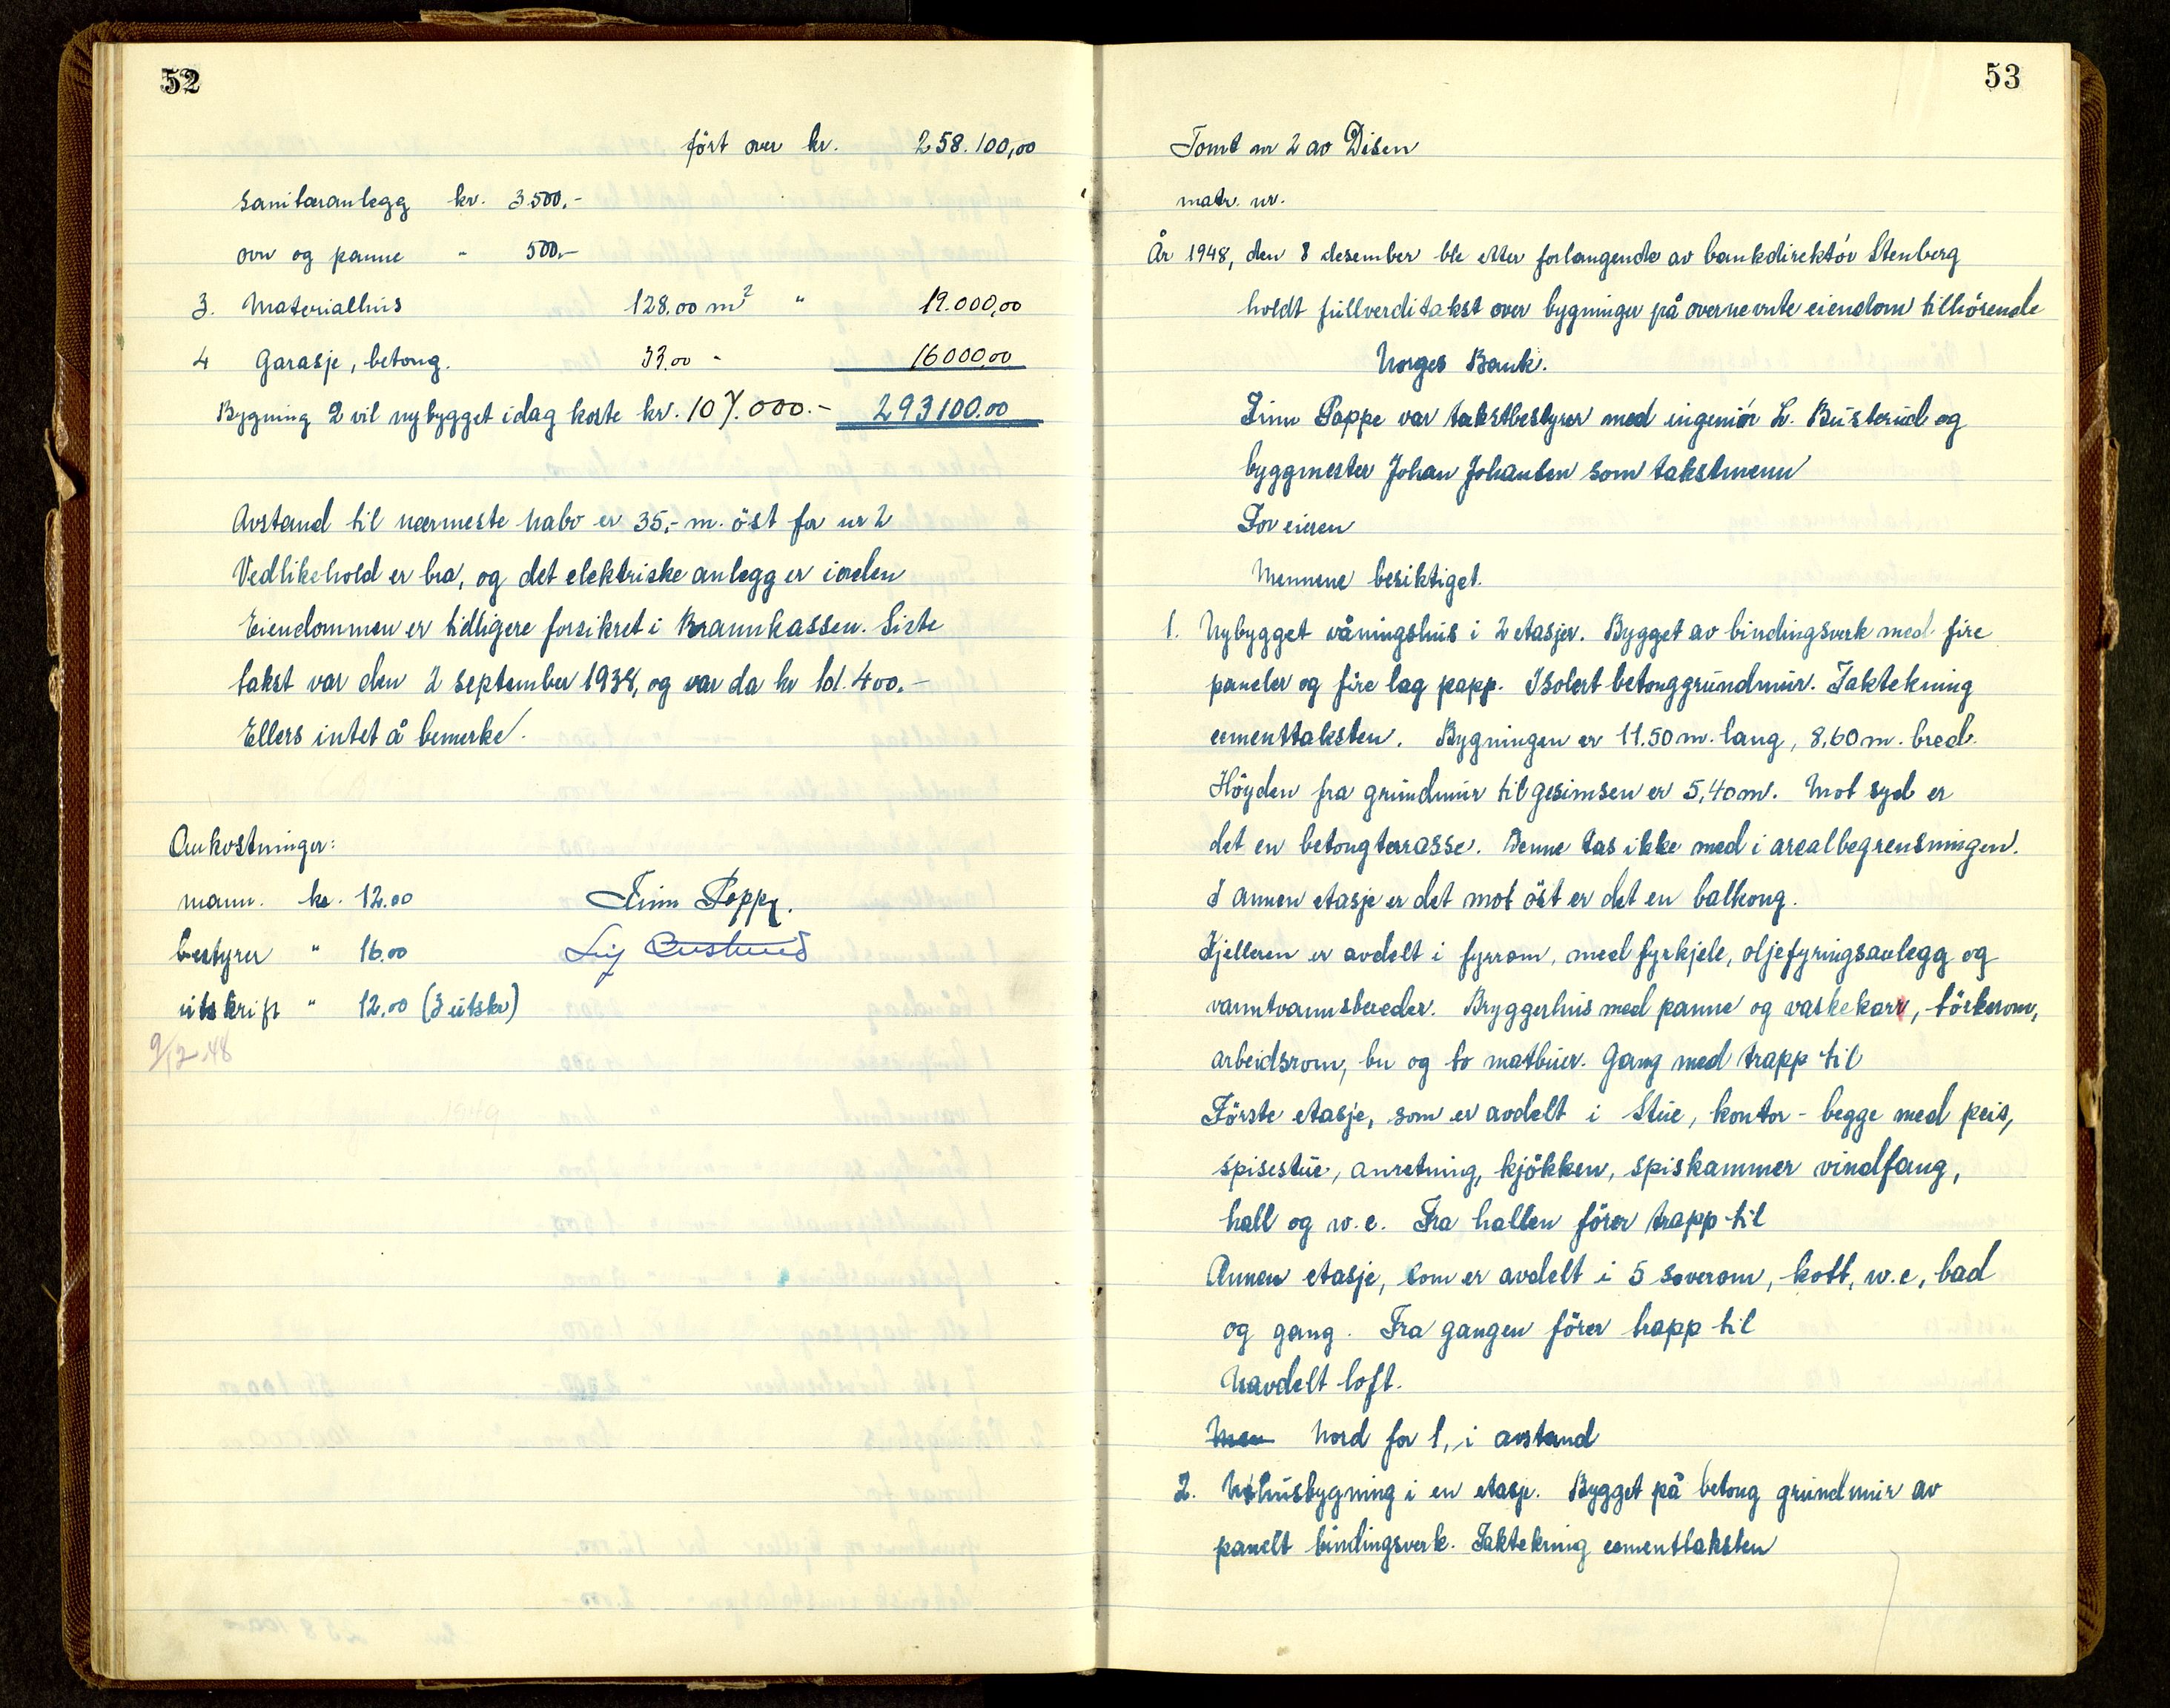 52
fört over kr. 258.100,00
Sanitæranlegg kr. 3.500.-
ovn og panne " 500.-
3. Materialhus 128.00 m² " 19.000,00
4 Garasje, betong. 33.00 " 16000,00
Bygning 2 vil nybygget idag koste kr. 107.000.- 293100.00
Avstand til nærmeste nabo er 35,- m. öst for nr 2
Vedlikehold er bra, og det elektriske anlegg er iorden
Eiendommen er tidligere forsikret i Brannkassen. Siste
takst var den 2 september 1938, og var da kr 101.400.-
Ellers intet å bemerke.
Omkostninger:
mann. kr. 12.00 Finn Poppe.
bestyrer " 16.00
utskrift " 12.00 (3 utskr)
9/12.48
53
Tomt nr 2 av Disen
matr. nr.
År 1948, den 8 desember ble etter forlangende av bankdirektör Stenberg
holdt fullverditakst over bygninger på overnevnte eiendom tilhörende
Norges Bank.
Finn Poppe var takstbestyrer med ingeniör L. Busterud og
byggmester Johan Johansen som takstmenn
For eieren
Mennene besiktiget.
1. Nybygget våningshus i 2 etasjer. Bygget av bindingsverk med fire
paneler og fire lag papp. Isolert betonggrundmur. Taktekning
cementtaksten. Bygningen er 11.50 m. lang, 8,60 m. bred.
Höyden fra grundmur til gesimsen er 5,40 m. Mot syd er
det en betongterrasse. Denne tas ikke med i arealbegrensningen.
I annen etasje er det mot öst er det en balkong.
Kjelleren er avdelt i fyrrom, med fyrkjele, oljefyringsanlegg og
varmtvannsbereder. Bryggerhus med panne og vaskekarr, törkerom,
arbeidsrom, bu og to matbuer. Gang med trapp til
Förste etasje, som er avdelt i Stue, kontor - begge med peis,
spisestue, anretning, kjökken, spiskammer vindfang,
hall og w.c. Fra hallen förer trapp til
Annen etasje, som er avdelt i 5 soverom, kott, w.c, bad
og gang. Fra gangen förer trapp til
Uavdelt loft.
Nord for 1, i avstand
2. Uthusbygning i en etasje. Bygget på betong grundmur av
panelt bindingsverk. Taktekning cementtaksten